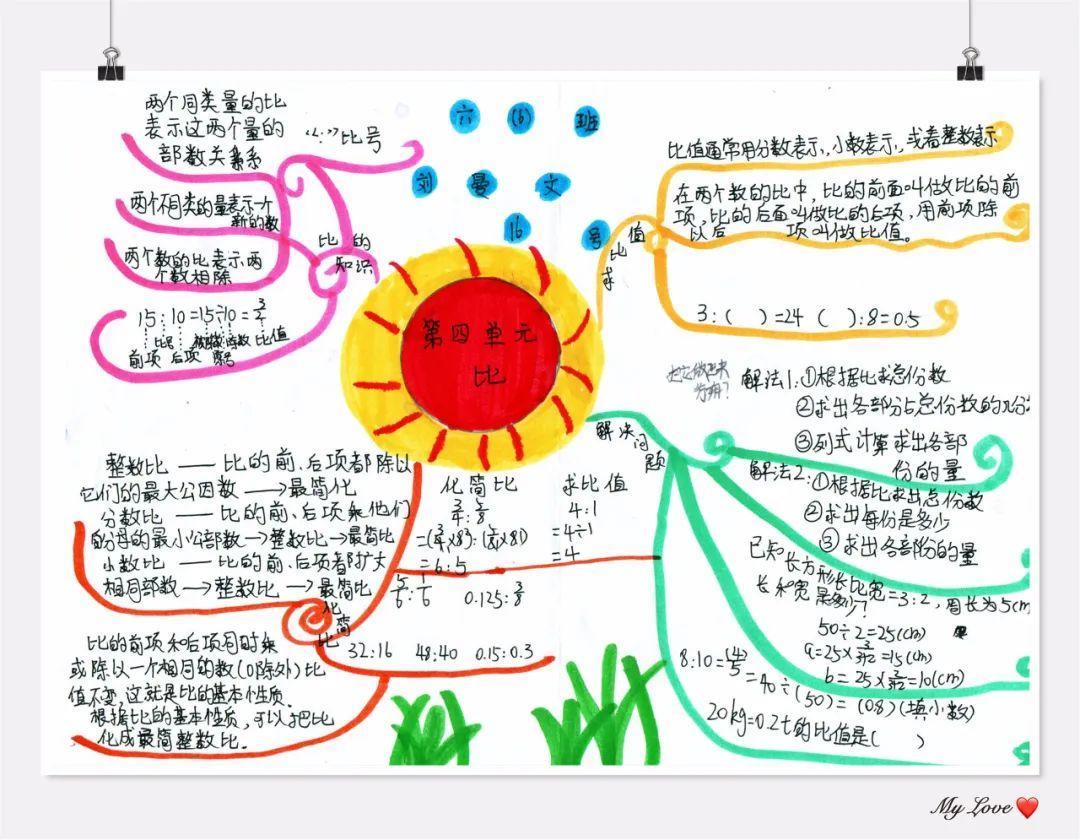 六(6)班
刘曼文
16号
第四单元
比
比的
知识
两个同类量的比
表示这两个量的
部数关系
“:”比号
两个不同类的量表示一个
新的数
两个数的比表示两
个数相除
15:10=15÷10=
前项 后项 比值
求比值
比值通常用分数表示,小数表示,或者整数表示
在两个数的比中,比的前面叫做比的前
项,比的后面叫做比的后项,用前项除
以后 项叫做比值。
3:( )=24 ( ):8=0.5
解决问题
解法1:①根据比求总份数
②求出各部分占总份数的几分
③列式计算求出各部
份的量
解法2:①根据比求出总份数
②求出每份是多少
③求出各部份的量
已知长方形长比宽=3:2,周长为5cm
长和宽是多少?
50÷2=25(cm)
a=25×3/3+2=15(cm)
b=25×2/3+2=10(cm)
8:10=(4)/5=40÷(50)=(0.8)(填小数)
20kg=0.2t的比值是( )
化简比
整数比——比的前、后项都除以
它们的最大公因数→最简化
分数比——比的前、后项乘他们
的分母的最小公部数→整数比→最简比
小数比——比的前、后项都扩大
相同部数→整数比→最简比
化简比
3/4:5/8
=(3/4×8):(5/8×8)
=6:5
求比值
4:1
=4÷1
=4
5/6:1/6 0.125:3/8
32:16 48:40 0.15:0.3
比的前项和后项同时乘
或除以一个相同的数(0除外)比
值不变,这就是比的基本性质.
根据比的基本性质,可以把比
化成最简整数比.
My Love